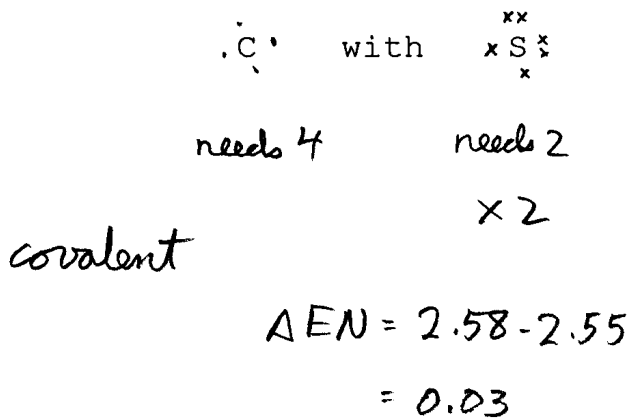 ·C· with xSx
needs 4 needs 2
× 2
covalent
ΔEN = 2.58 - 2.55
= 0.03